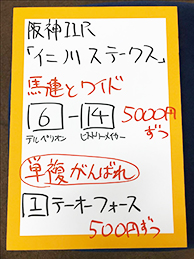 阪神11R
「仁川ステークス」
馬連とワイド
6-14 5000円ずつ
デルペリオン ヒストリーメイカー
単複がんばれ
1 テーオーフォース
500円ずつ